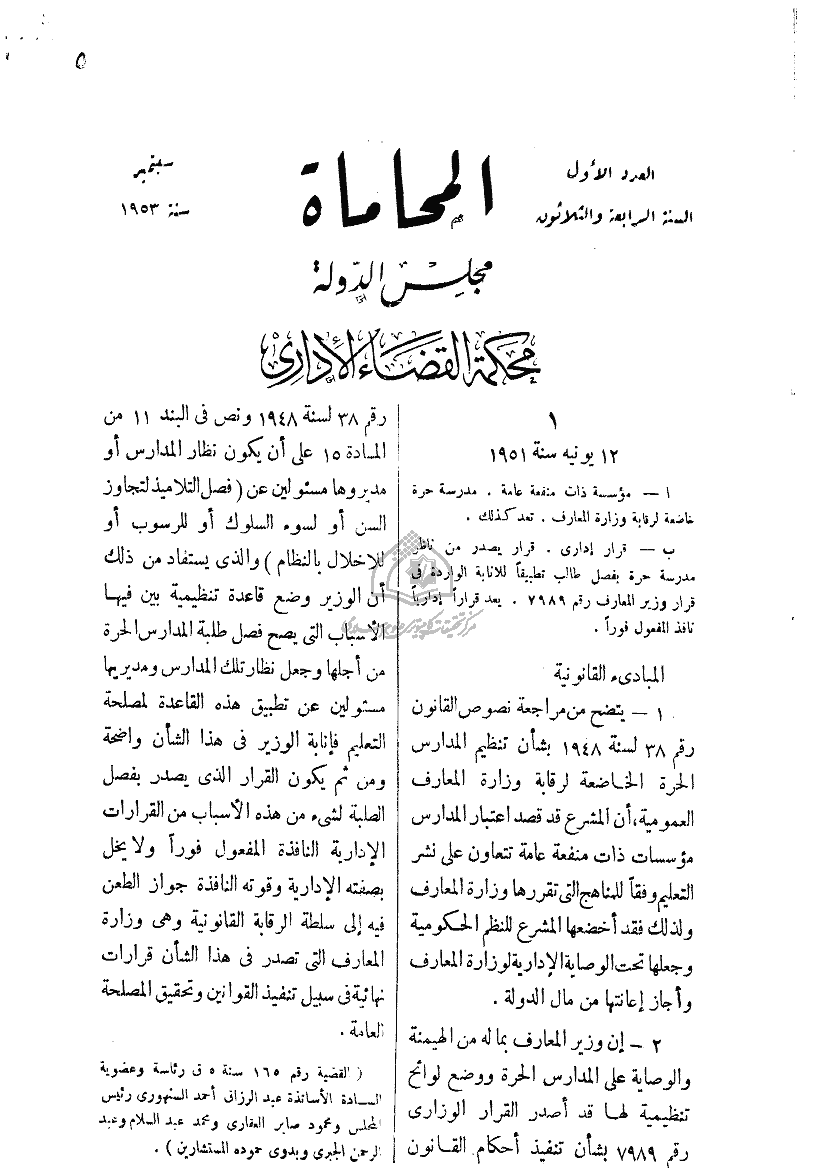 ٥
العدد الأول
السنة الرابعة والثلاثون
المحاماة
سبتمبر
سنة ١٩٥٣
مجلس الدولة
محكمة القضاء الإدارى
١
١٢ يونيه سنة ١٩٥١
ا — مؤسسة ذات منفعة عامة . مدرسة حرة
خاضعة لرقابة وزارة المعارف . تعد كذلك .
ب — قرار إدارى . قرار يصدر من ناظر
مدرسة حرة بفصل طالب تطبيقاً للانابة الواردة فى
قرار وزير المعارف رقم ٧٩٨٩ . يعد قراراً إدارياً
نافذ المفعول فوراً .
المبادىء القانونية
١ — يتضح من مراجعة نصوص القانون
رقم ٣٨ لسنة ١٩٤٨ بشأن تنظيم المدارس
الحرة الخاضعة لرقابة وزارة المعارف
العمومية، أن المشرع قد قصد اعتبار المدارس
مؤسسات ذات منفعة عامة تتعاون على نشر
التعليم وفقاً للمناهج التى تقررها وزارة المعارف
ولذلك فقد أخضعها المشرع للنظم الحكومية
وجعلها تحت الوصاية الإدارية لوزارة المعارف
وأجاز إعانتها من مال الدولة .
٢ — إن وزير المعارف بما له من الهيمنة
والوصاية على المدارس الحرة ووضع لوائح
تنظيمية لها قد أصدر القرار الوزارى
رقم ٧٩٨٩ بشأن تنفيذ أحكام القانون
رقم ٣٨ لسنة ١٩٤٨ ونص فى البند ١١ من
المادة ١٥ على أن يكون نظار المدارس أو
مديروها مسئولين عن ( فصل التلاميذ لتجاوز
السن أو لسوء السلوك أو للرسوب أو
للاخلال بالنظام ) والذى يستفاد من ذلك
أن الوزير وضع قاعدة تنظيمية بين فيها
الأسباب التى يصح فصل طلبة المدارس الحرة
من أجلها وجعل نظار تلك المدارس ومديريها
مسئولين عن تطبيق هذه القاعدة لمصلحة
التعليم فإنابة الوزير فى هذا الشأن واضحة
ومن ثم يكون القرار الذى يصدر بفصل
الطلبة لشىء من هذه الأسباب من القرارات
الإدارية النافذة المفعول فوراً ولا يخل
بصفته الإدارية وقوته النافذة جواز الطعن
فيه إلى سلطة الرقابة القانونية وهى وزارة
المعارف التى تصدر فى هذا الشأن قرارات
نهائية فى سبيل تنفيذ القوانين وتحقيق المصلحة
العامة .
( القضية رقم ١٦٥ سنة ٥ ق رئاسة وعضوية
السادة الأساتذة عبد الرزاق أحمد السنهورى رئيس
المجلس ومحمود صابر العقارى ومحمد عبد السلام وعبد
الرحمن الجبرى وبدوى حموده المستشارين ) .